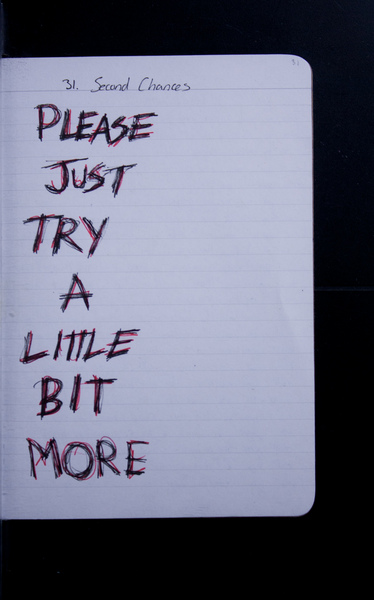 31
31. Second Chances
PLEASE
JUST
TRY
A
LITTLE
BIT
MORE